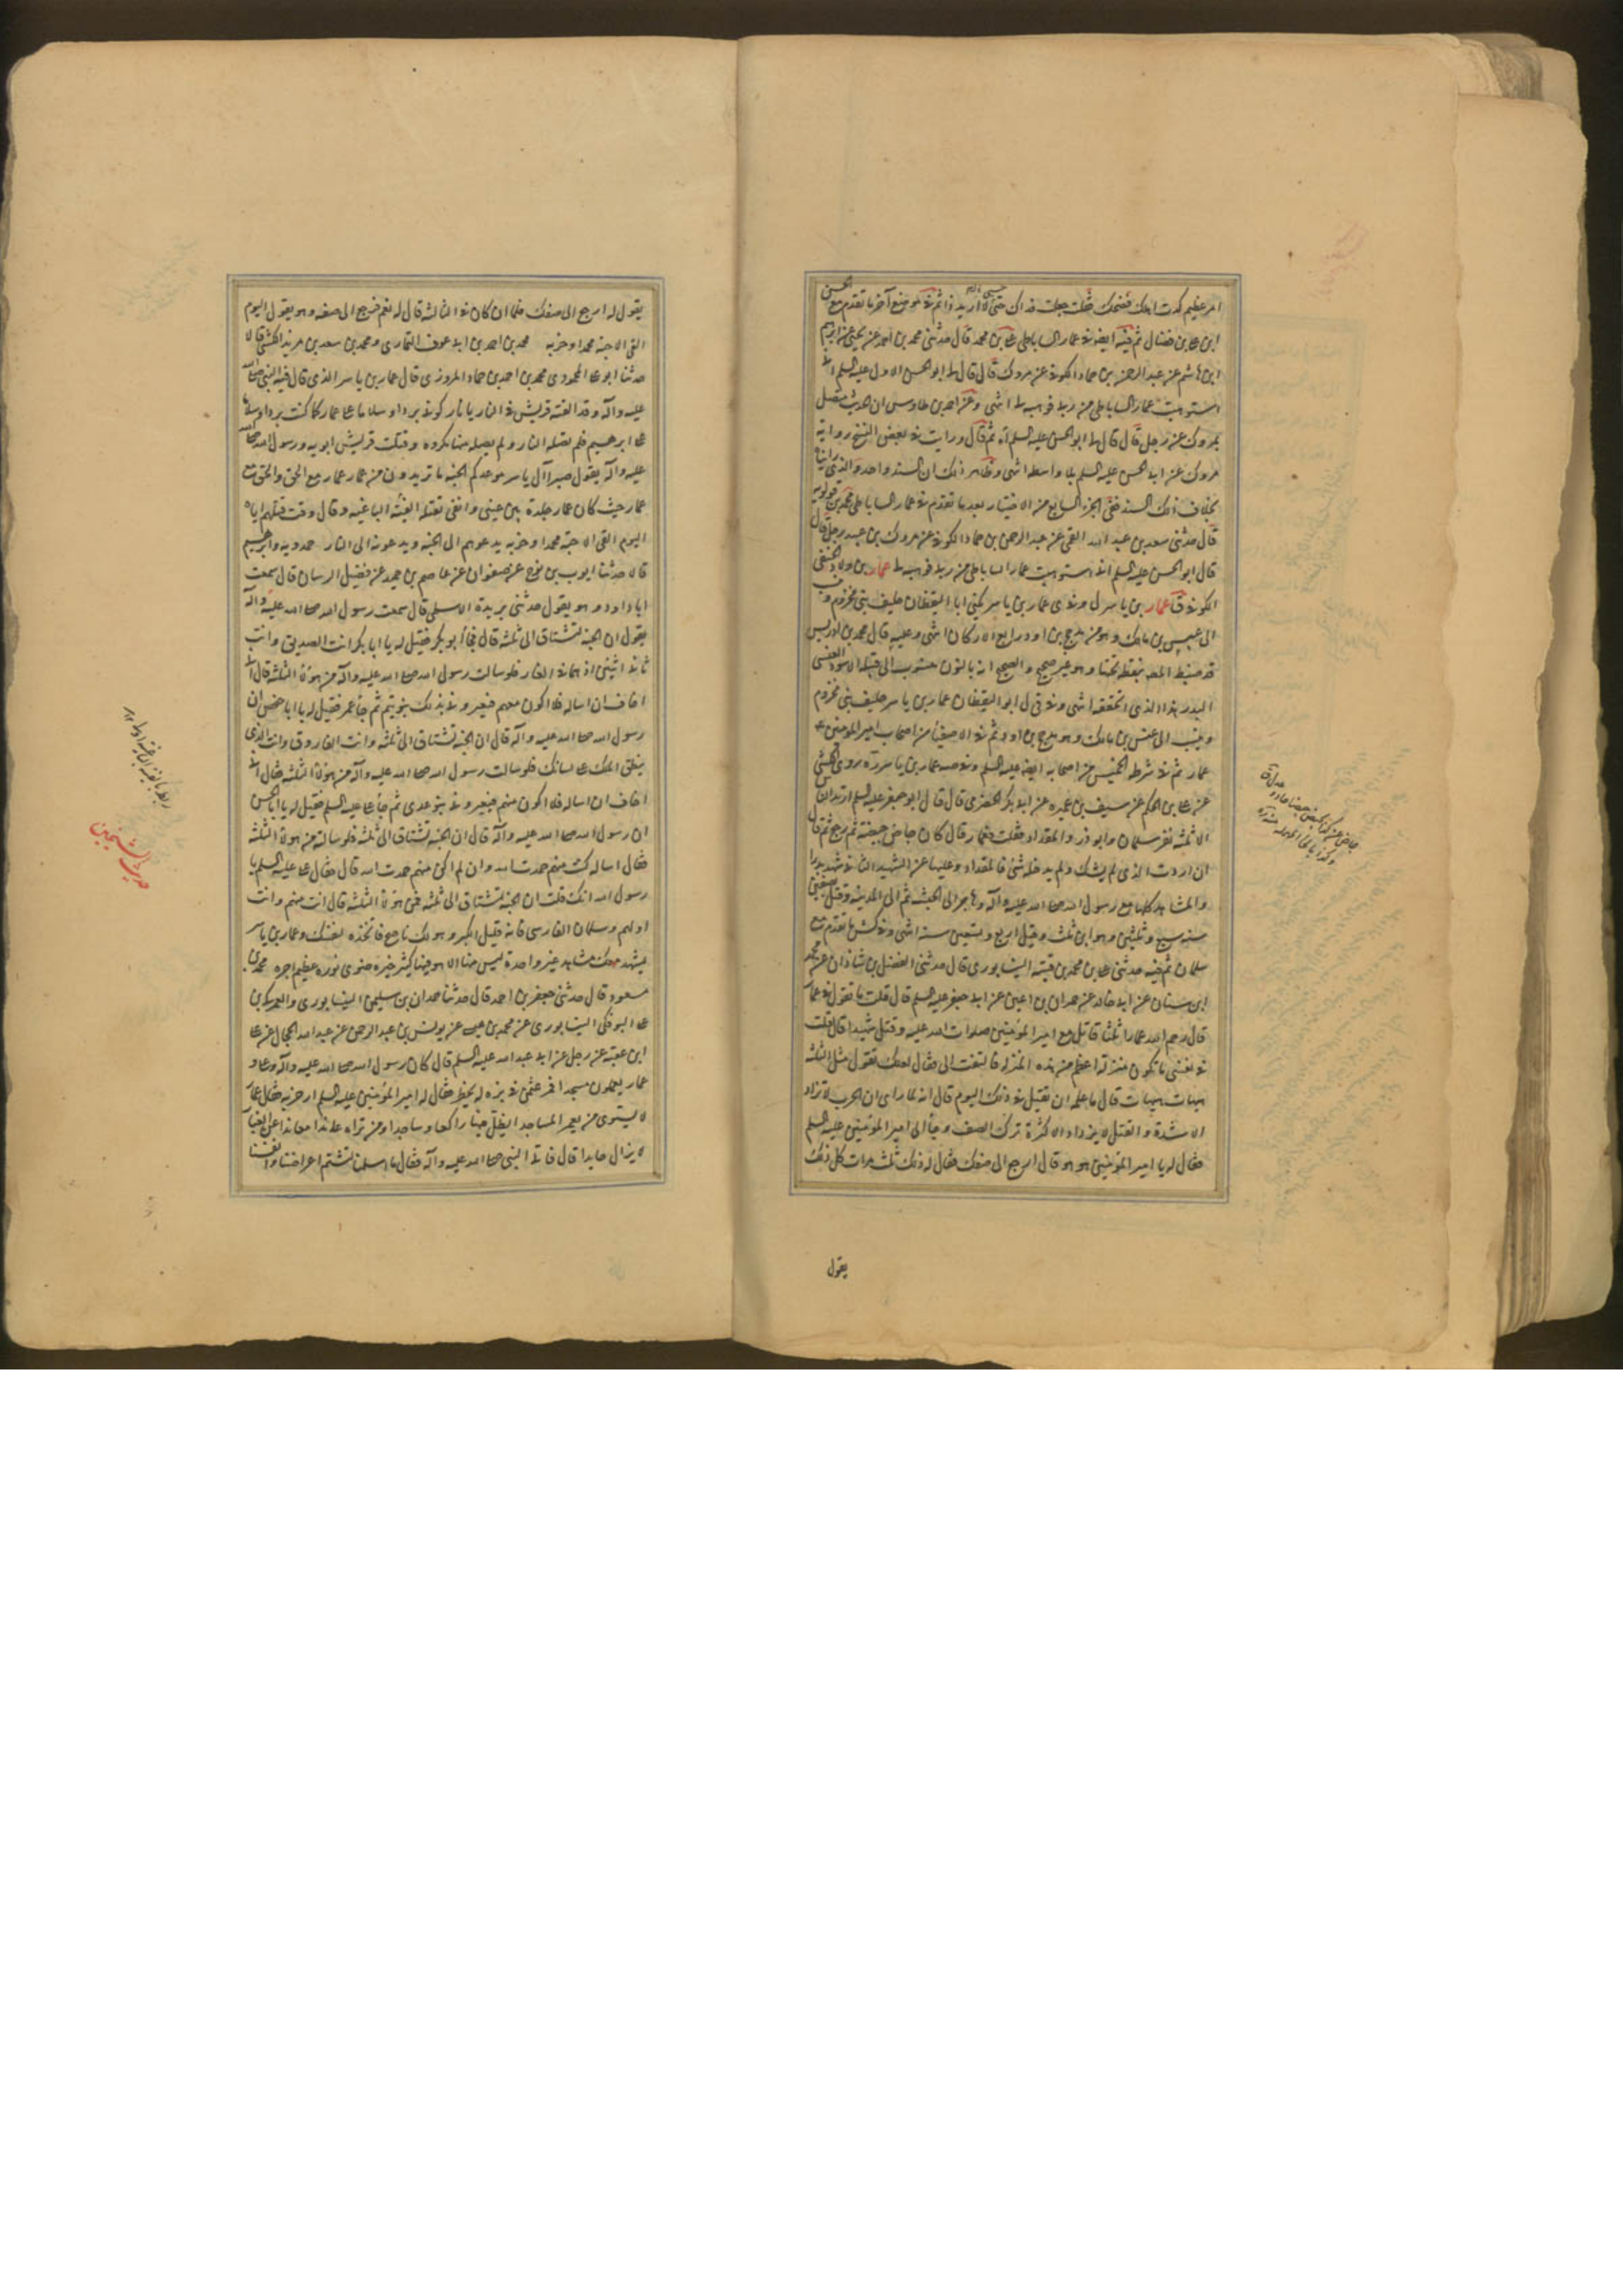 امر عظيم كدت اهلك فضحك فقلت جعلت فداك حتى لا اريد ذا ثم في موضع آخر ما تقدم مع الحسن
ابن علي بن فضال ثم فيه ايضا في عمار الساباطي علي بن محمد قال حدثني محمد بن احمد عن يحيى عن ابرهيم
ابن هاشم عن عبد الرحمن بن حماد الكوفي عن مروك قال قال لي ابو الحسن الاول عليه السلم اني
استوهبت عمار الساباطي من ربي فوهبه لي انتهى وعن احمد بن طاوس ان الحديث متصل
بمروك عن رجل قال قال لي ابو الحسن عليه السلم آه ثم قال ورايت في بعض النسخ رواية
مروك عن ابي الحسن عليه السلم بلا واسطه انتهى وظاهر ذلك ان السند واحد والذي رايناه
بخلاف ذلك السند ففي الجزء السابع من الاختيار بعد ما تقدم في عمار الساباطي محمد بن قولويه
قال حدثني سعد بن عبد الله القمي عن عبد الرحمن بن حماد الكوفي عن مروك بن عبيد عن رجل قال
قال ابو الحسن عليه السلم اني استوهبت عمار الساباطي من ربي فوهبه لي عمار بن
الكوفي ق عمار بن ياسر ل وفي ى عمار بن ياسر يكنى ابا اليقظان حليف بني مخزوم وينسب
الى عبس بن مالك وهو من مذحج بن ادد رابع الاركان انتهى وعليه قال محمد بن ادريس
قد ضبط المصنف بنقطه تحتها وهو غير صحيح والصحيح انه بالنون منسوب الى قبيلة الاسود العنسي
البدر هذا الذي تحققه انتهى وفي قي ل ابو اليقظان عمار بن ياسر حليف بني مخزوم
وينسب الى عنس بن مالك وهو مذحج بن ادد ثم في الاصفياء من اصحاب امير المؤمنين ع
عمار ثم في شرطه الخميس من اصحابه ايضا عليه السلم وفي صه عمار بن ياسر ره روى الكشي
عن علي بن الحكم عن سيف بن عميره عن ابي بكر الحضرمي قال قال ابو جعفر عليه السلم ارتد الناس
الا ثلثه نفر سلمان وابو ذر والمقداد فقلت فعمار قال كان جاض جيضة ثم رجع ثم قال
ان اردت الذي لم يشك ولم يدخله شيء فالمقداد وعليها عن الشهيد الثاني شهد بدرا
والمشاهد كلها مع رسول الله صلى الله عليه وآله وهاجر الى الحبشه ثم الى المدينه وقتل بصفين
سنه سبع وثلثين وهو ابن ثلث وقيل اربع وتسعين سنه انتهى وفي كش ما تقدم مع
سلمان ثم فيه حدثني علي بن محمد بن قتيبه النيشابوري قال حدثني الفضل بن شاذان عن محمد
ابن سنان عن ابي خالد عن حمران بن اعين عن ابي جعفر عليه السلم قال قلت ما تقول في عمار
قال رحم الله عمارا ثلثا قاتل مع امير المؤمنين صلوات الله عليه وقتل شهيدا قال قلت
في نفسي ما تكون منزلة اعظم من هذه المنزله فالتفت الي فقال لعلك تقول مثل الثلثه
هيهات هيهات قال ما علمه ان يقتل في ذلك اليوم قال انه لما راى ان الحرب لا تزداد
الا شدة والقتل لا يزداد الا كثرة ترك الصف وجاء الى امير المؤمنين عليه السلم
فقال له يا امير المؤمنين هو هو قال ارجع الى صفك فقال له ذلك ثلث مرات كل ذلك
يقول
يقول له ارجع الى صفك فلما ان كان في الثالثه قال له نعم فرجع الى صفه وهو يقول اليوم
القى الاحبه محمدا وحزبه محمد بن احمد بن ابي عوف البخاري ومحمد بن سعد بن مزيد الكشي قالا
حدثنا ابو علي المحمودي محمد بن احمد بن حماد المروزي قال عمار بن ياسر الذي قال فيه النبي صلى الله
عليه وآله وقد القته قريش في النار يا نار كوني بردا وسلاما على عمار كما كنت بردا وسلاما
على ابرهيم فلم يصله النار ولم يصله منها مكروه وقتلت قريش ابويه ورسول الله صلى الله
عليه وآله يقول صبرا آل ياسر موعدكم الجنه ما تريدون من عمار عمار مع الحق والحق مع
عمار حيث كان عمار جلدة بين عيني وانفي تقتله الفئة الباغيه وقال وقت قتلهم اياه
اليوم القى الاحبه محمدا وحزبه يدعوهم الى الجنه ويدعونه الى النار حمدويه وابرهيم
قالا حدثنا ايوب بن نوح عن صفوان عن عاصم بن حميد عن فضيل الرسان قال سمعت
ابا داود وهو يقول حدثني بريدة الاسلمي قال سمعت رسول الله صلى الله عليه وآله
يقول ان الجنه تشتاق الى ثلثه قال فجاء ابو بكر فقيل له يا ابا بكر انت الصديق وانت
ثاني اثنين اذ هما في الغار فلو سالت رسول الله صلى الله عليه وآله من هؤلاء الثلثه قال اني
اخاف ان اساله فلا اكون منهم فيعيروني بذلك بنو تيم ثم جاء عمر فقيل له يا ابا حفص ان
رسول الله صلى الله عليه وآله قال ان الجنه تشتاق الى ثلثه وانت الفاروق وانت الذي
ينطق الملك على لسانك فلو سالت رسول الله صلى الله عليه وآله من هؤلاء الثلثه فقال اني
اخاف ان اساله فلا اكون منهم فيعيروني بنو عدي ثم جاء علي عليه السلم فقيل له يا ابا الحسن
ان رسول الله صلى الله عليه وآله قال ان الجنه تشتاق الى ثلثه فلو سالته من هؤلاء الثلثه
فقال اساله ان كنت منهم حمدت الله وان لم اكن منهم حمدت الله قال فقال علي عليه السلم يا
رسول الله انك قلت ان الجنه تشتاق الى ثلثه فمن هؤلاء الثلثه قال انت منهم وانت
اولهم وسلمان الفارسي فانه قليل الكبر وهو لك ناصح فاتخذه لنفسك وعمار بن ياسر
يشهد معك مشاهد غير واحدة ليس منها الا هو فيها كثير خيره ضوي نوره عظيم اجره محمد بن
مسعود قال حدثني جعفر بن احمد قال حدثنا حمدان بن سليمن النيشابوري والعمركي بن
علي البوفكي النيشابوري عن محمد بن عيسى عن يونس بن عبد الرحمن عن عبد الله الحجال عن علي
ابن عقبه عن رجل عن ابي عبد الله عليه السلم قال كان رسول الله صلى الله عليه وآله وعلي و
عمار يعملون مسجدا فمر عثمن في بزه له يخطر فقال له امير المؤمنين عليه السلم ارجز به فقال عمار
لا يستوي من يعمر المساجدا يظل فيها راكعا وساجدا ومن تراه عاندا معاندا عن الغبار
لا يزال حايدا قال فاتى النبي صلى الله عليه وآله فقال ما اسلمنا لتشتم اعراضنا وانفسنا